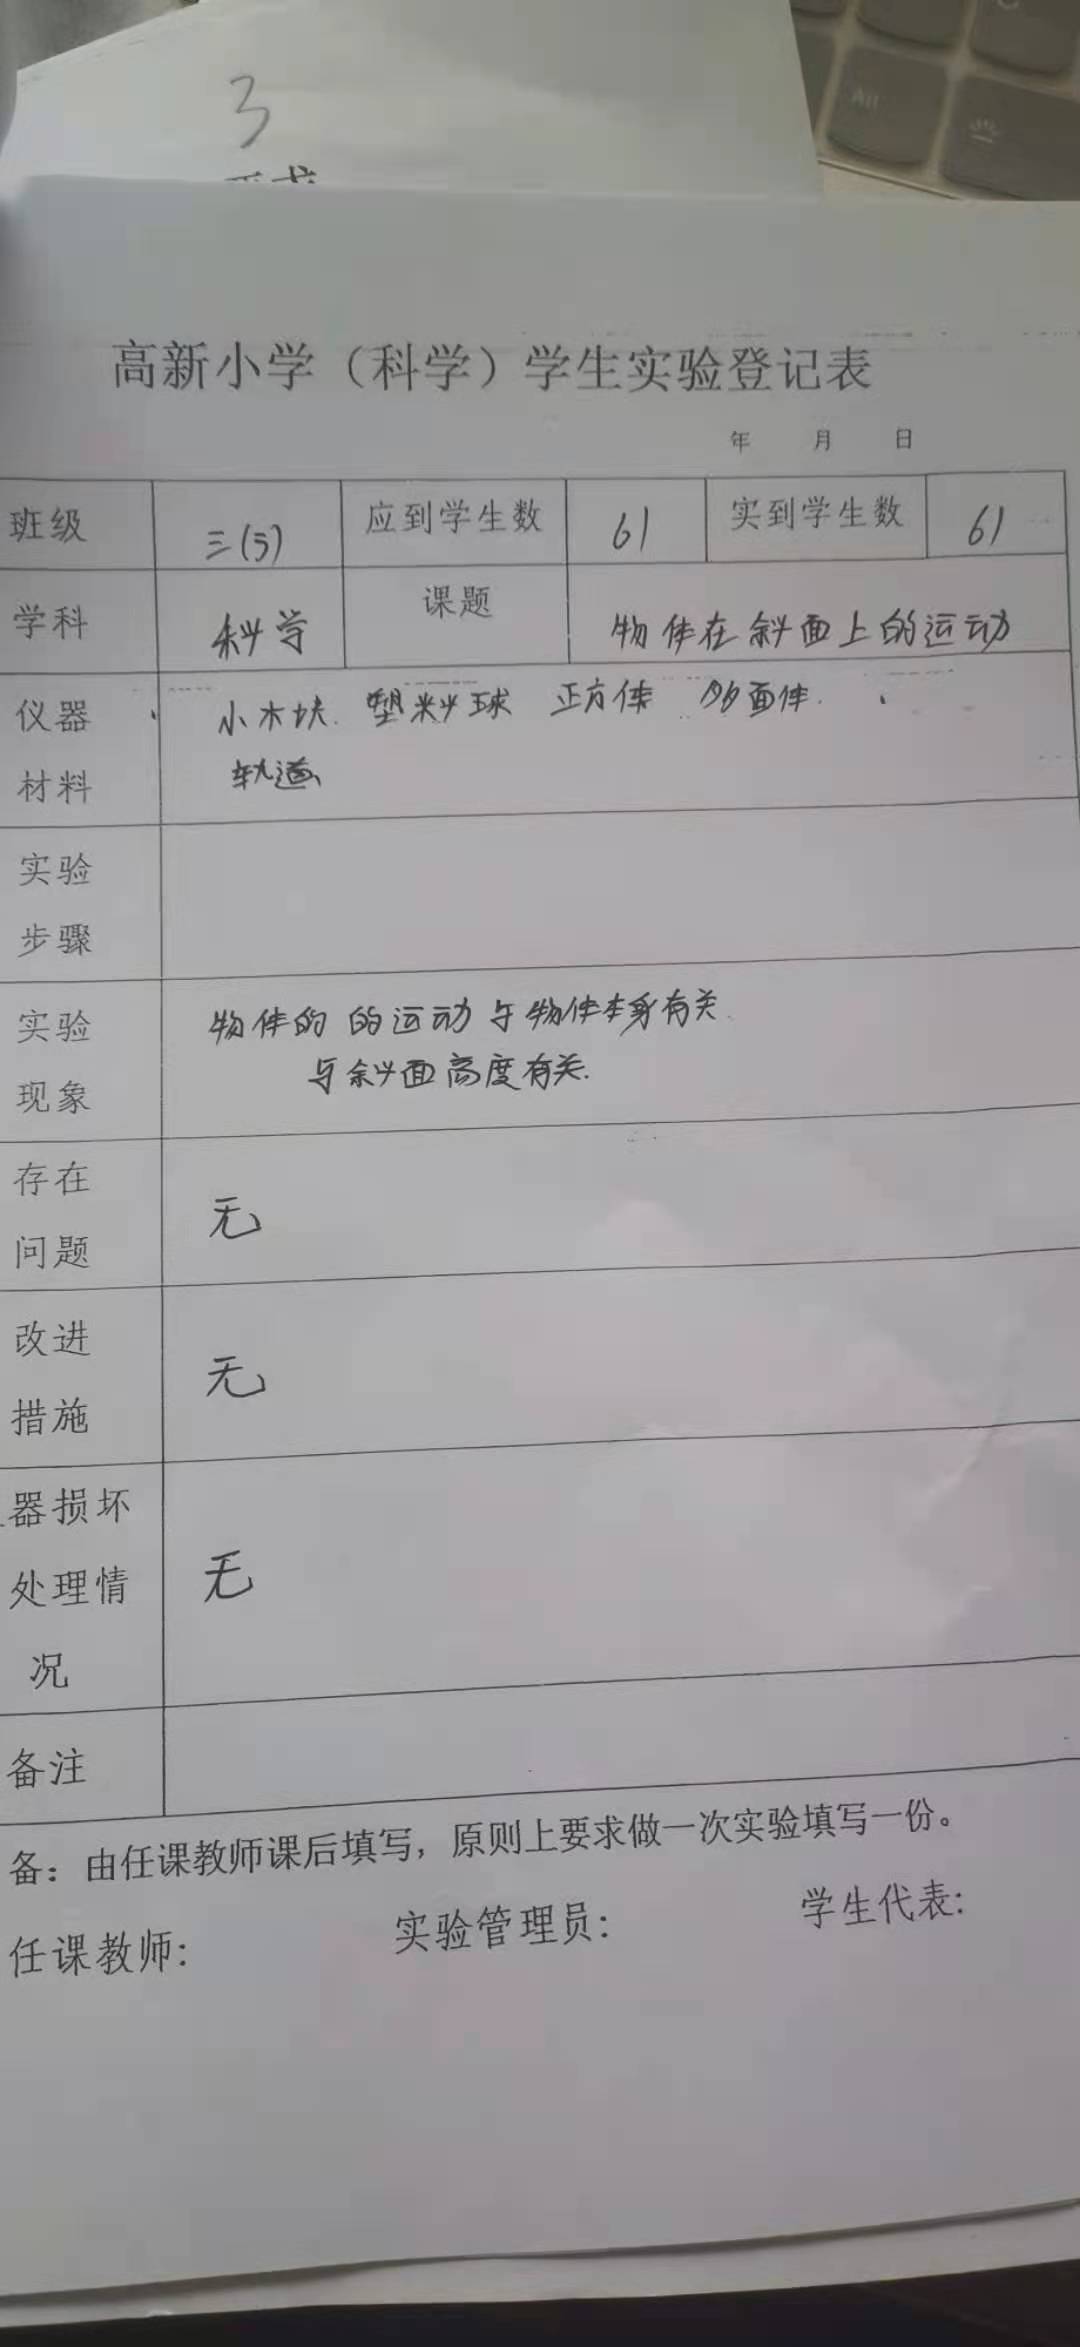 3
高新小学（科学）学生实验登记表
年 月 日
班级 三(5) 应到学生数 61 实到学生数 61
学科 科学 课题 物体在斜面上的运动
仪器 小木块 塑料球 正方体 多面体
材料 轨道
实验
步骤
实验 物体的的运动与物体本身有关
现象 与斜面高度有关.
存在
问题 无
改进
措施 无
器损坏
处理情 无
况
备注
备：由任课教师课后填写，原则上要求做一次实验填写一份。
任课教师: 实验管理员: 学生代表: